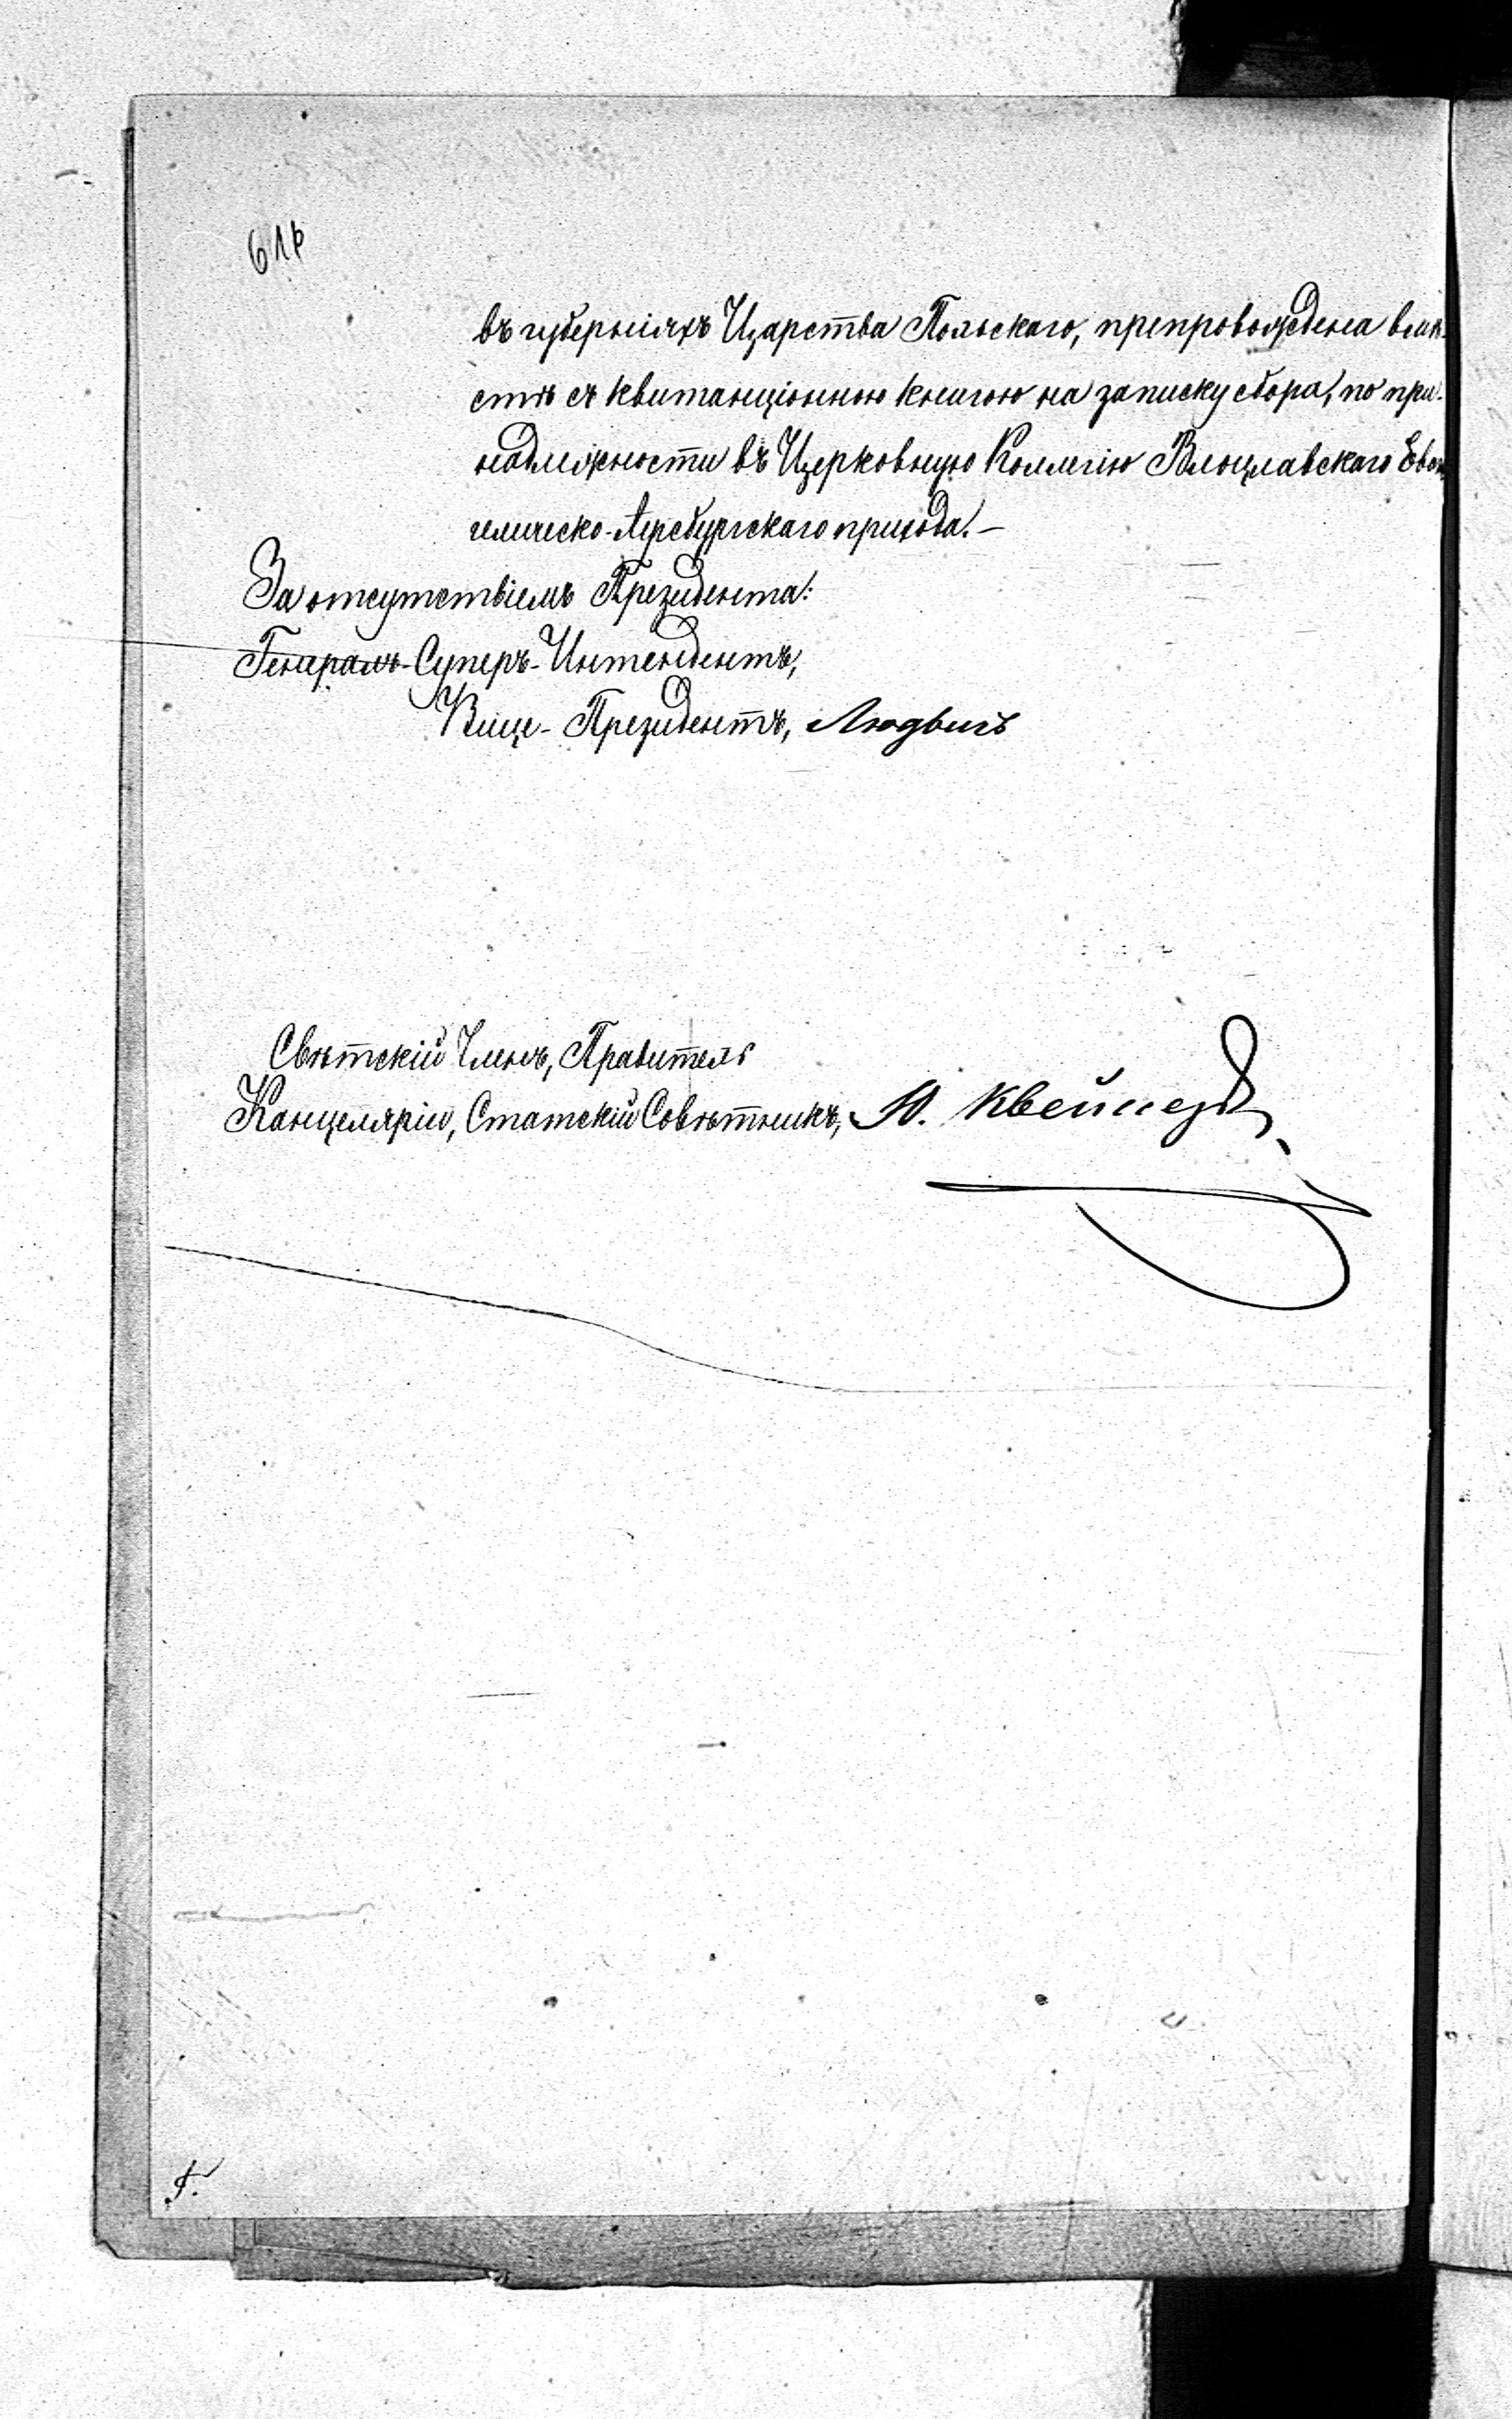 61b
въ губерніяхъ Царства Польскаго, препровождена вмѣ-
стѣ съ квитанціонною книгою на записку сбора, по при-
надлежности въ Церковную Коллегію Влоцлавскаго Еван
гелическо-Аугсбургскаго прихода.—
За отсутствіемъ Президента:
Генералъ-Суперъ-Интендентъ,
Вице-Президентъ, Людвигъ
Свѣтскій Членъ, Правитель
Канцеляріи, Статскій Совѣтникъ, Ю.